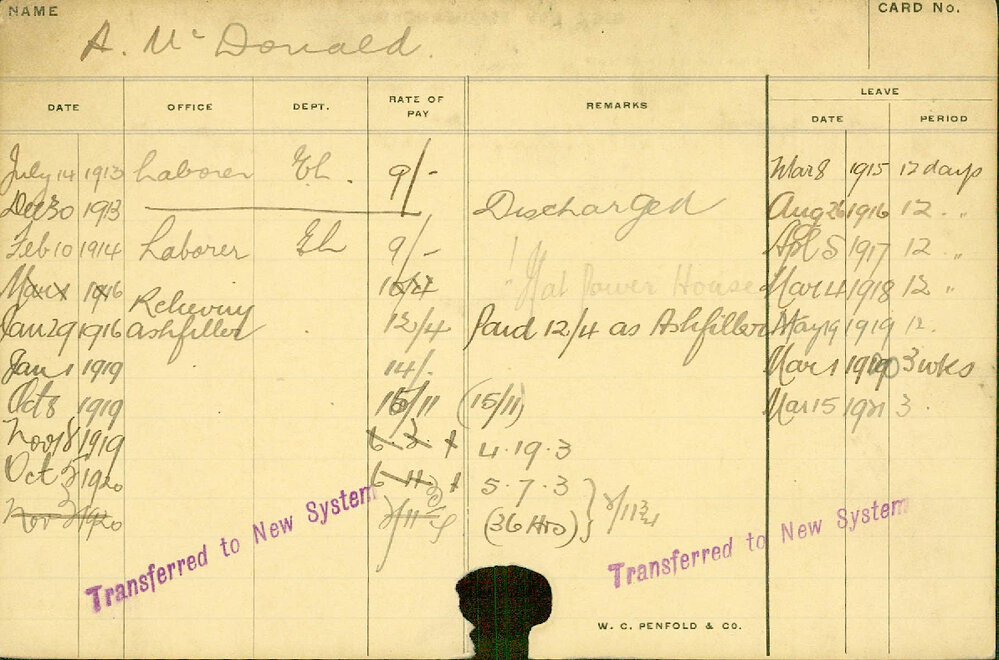 NAME
CARD No.
A. McDonald.
DATE OFFICE DEPT. RATE OF PAY REMARKS LEAVE
DATE PERIOD
July 14 1913 Laborer EL. 9/- Mar 8 1915 12 days
Dec 30 1913 Discharged Aug 26 1916 12 . "
Feb 10 1914 Laborer EL 9/- Apl 5 1917 12 "
1916 at Power House Mar 14 1918 12 "
Relieving
Jan 29 1916 ashfiller . 12/4 Paid 12/4 as Ashfiller May 19 1919 12 .
Jan 1 1919 14/- Mar 1 3 wks
Oct 8 1919 15/11 (15/11) Mar 15 1921 3 .
Nov 18 1919 4.19.3
Oct 1920 5.7.3
Nov 1920 (36 Hrs)
Transferred to New System
Transferred to New System
W. C. PENFOLD & CO.